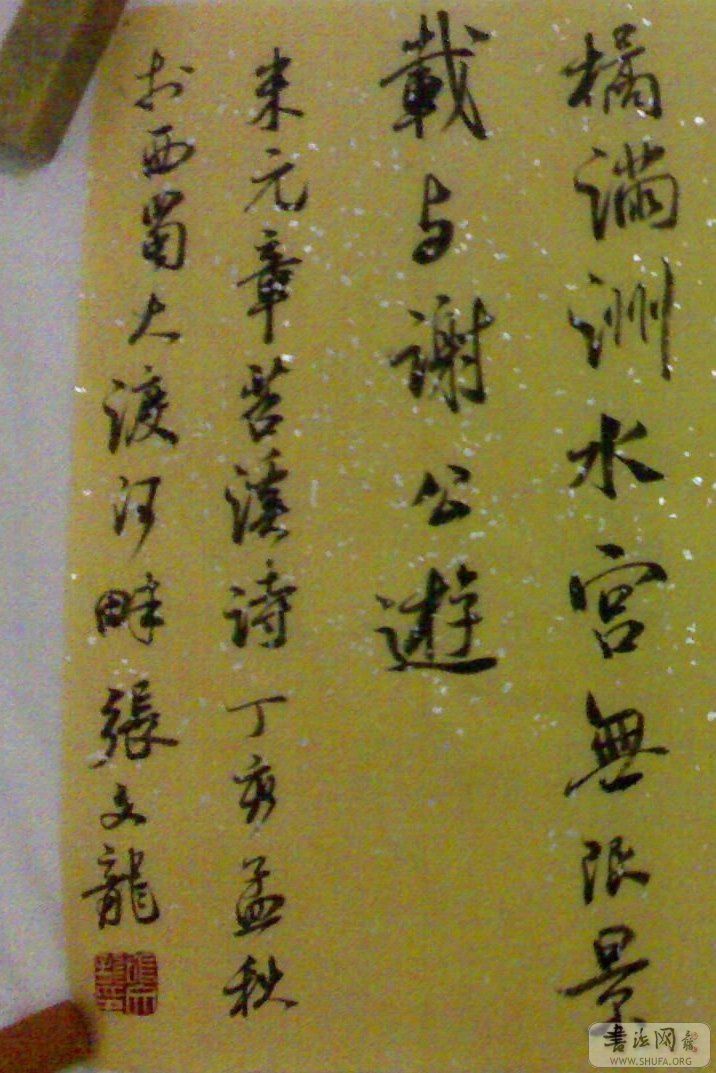 橘滿洲水宮無限景
載与謝公遊
米元章苕溪詩丁亥孟秋
於西蜀大渡河畔張文龍
書法网
WWW.SHUFA.ORG